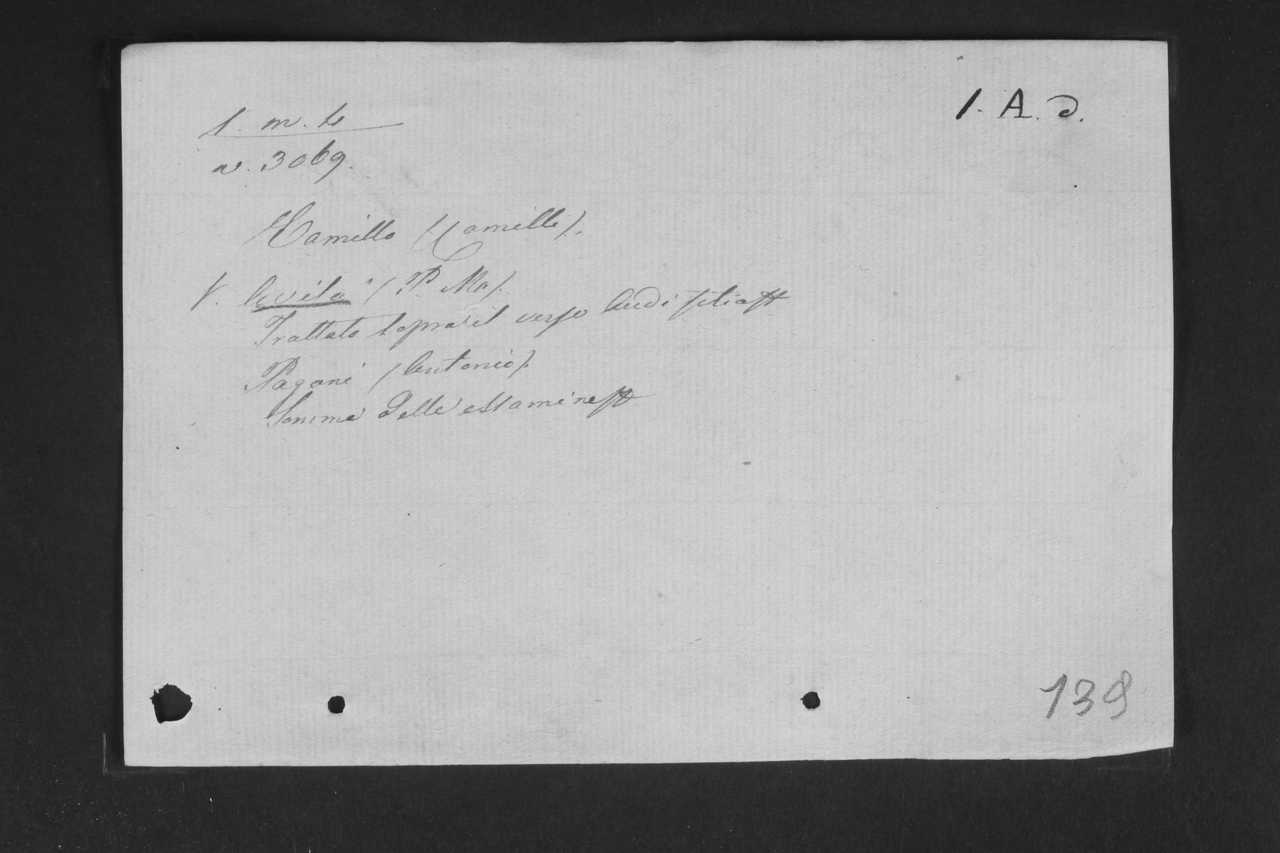 1. A. d.
1. m. 4
n. 3069.
Camillo (Camilli).
V. Avila (P. Mo).
Trattato sopra il verso Audi filia ff
Pagani (Antonio).
Somma delle essamine ff
139